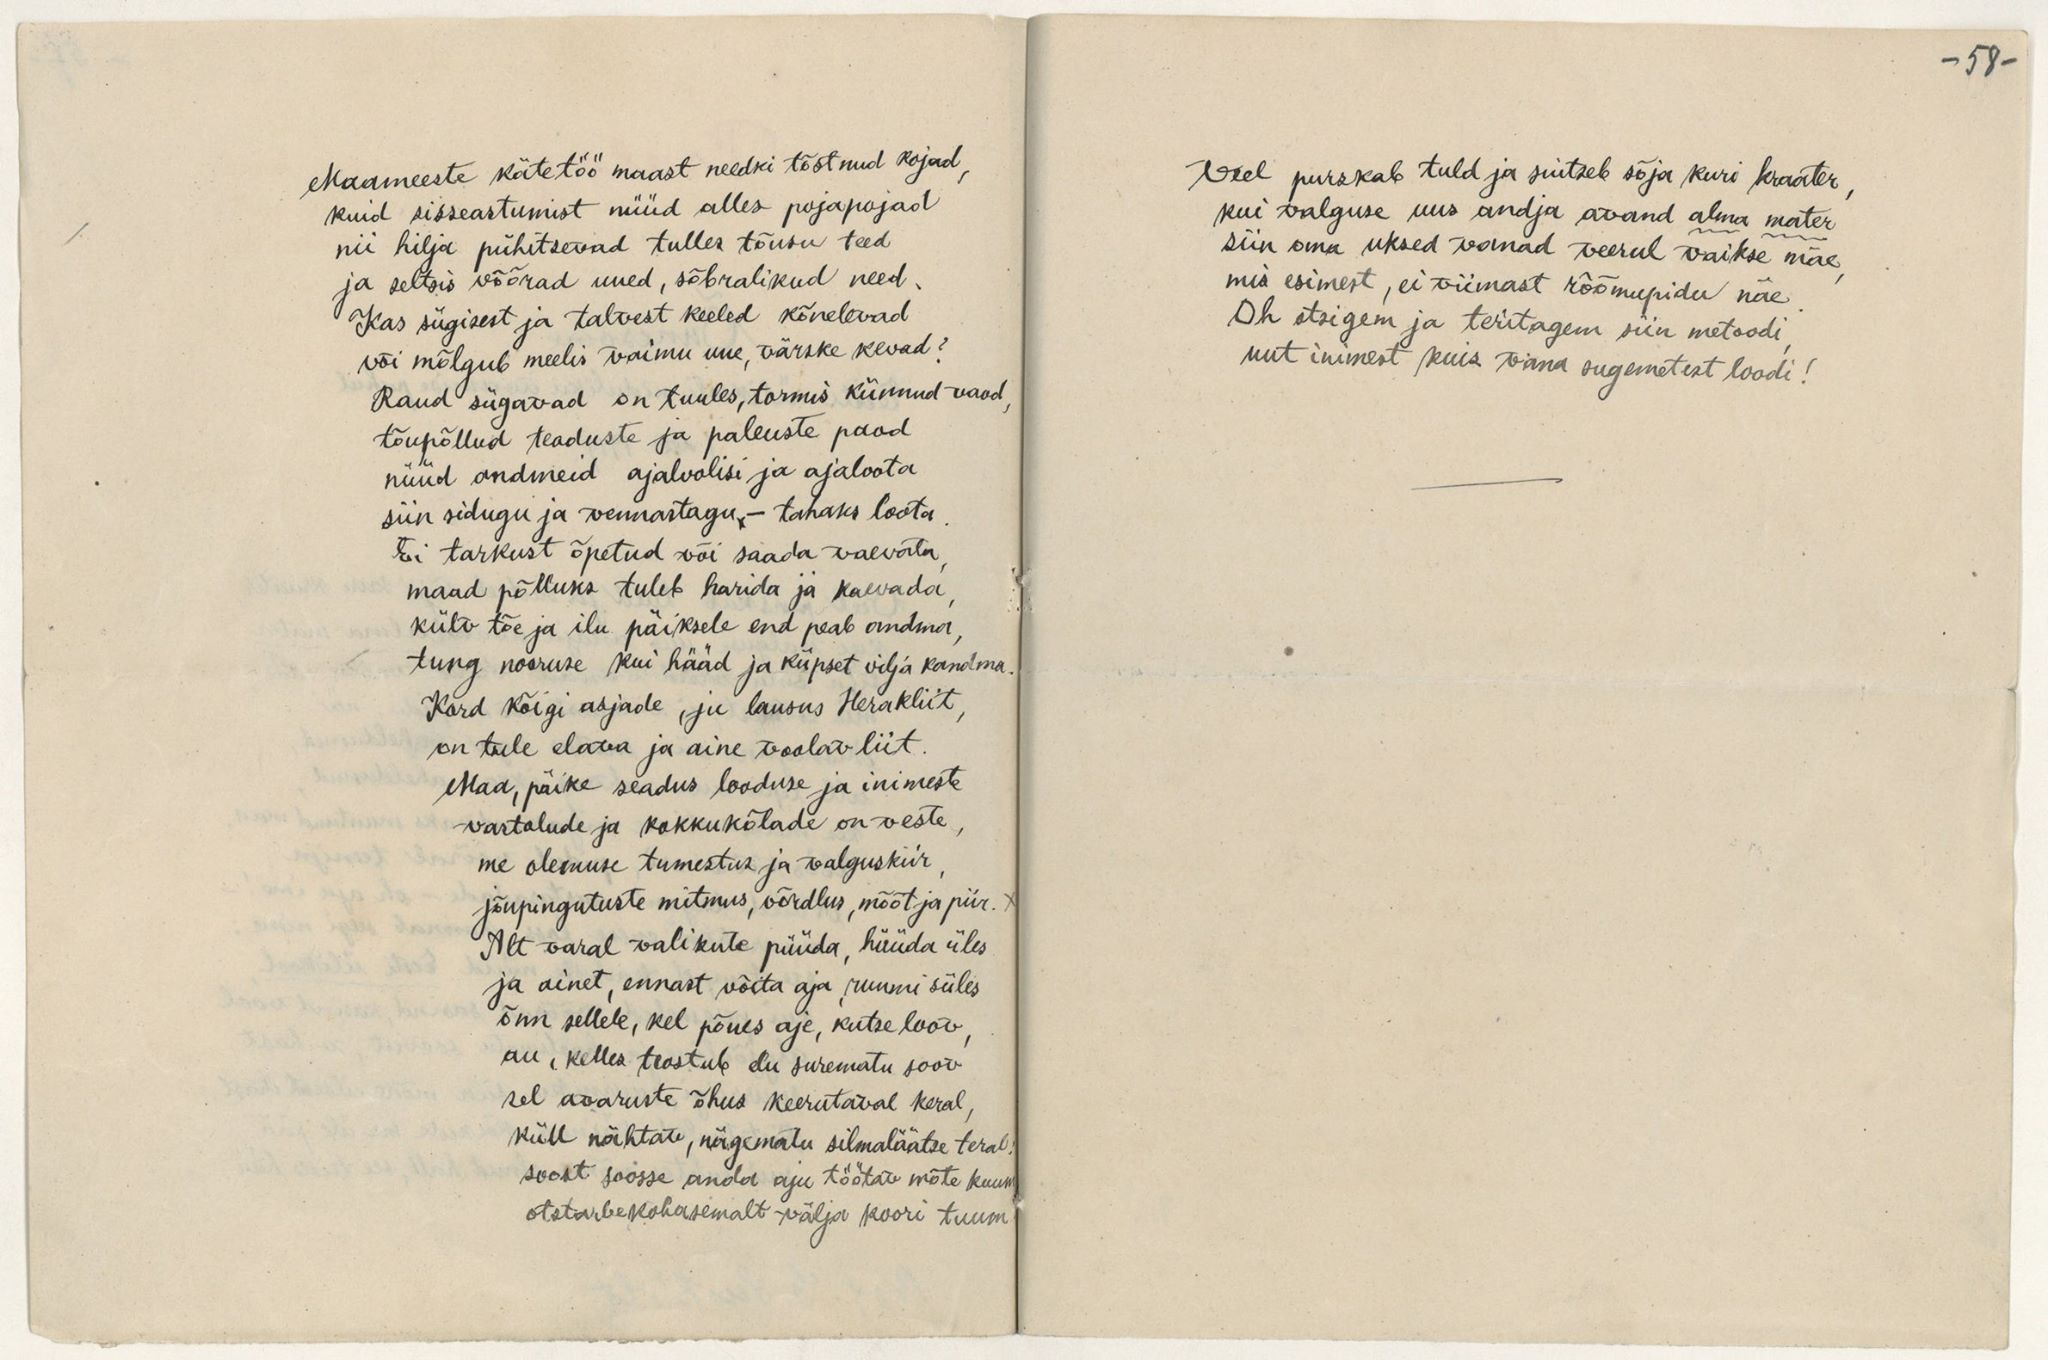 Maameeste kätetöö maast needki tõstnud kojad,
kuid sisseastumist nüüd alles pojapojad
nii hilja pühitsevad tulles tõusu teed
ja seltsis võõrad uued, sõbralikud need.
Kas sügisest ja talvest keeled kõnelevad
või mõlgub meelis vaimu uue, värske kevad?
Raud sügavad on tuules, tormis künnud vaod,
tõupõllud teaduste ja paleuste paod
nüüd andmeid ajaloolisi ja ajaloota
siin sidugu ja vennastagu, – tahaks loota.
Ei tarkust õpetud või saada vaevata,
maad põlluks tuleb harida ja kaevada,
külv tõe ja ilu päiksele end peab andma,
tung nooruse kui hääd ja küpset vilja kandma.
Kord kõigi asjade, ju lausus Herakliit,
on tule elava ja aine voolav liit.
Maa, päike seadus looduse ja inimeste
vastolude ja kokkukõlade on veste,
me olemuse tumestus ja valguskiir,
jõupingutuste mitmus, võrdlus, mõõt ja piir.
Alt varal valikute püüda, hüüda üles
ja ainet, ennast võita aja, ruumi süles
õnn sellele, kel põues aje, kutse loov,
au, kelles teostub elu surematu soov
sel avaruste õhus keerutaval keral,
küll nähtav, nägematu silmaläätse teral!
soost soosse anda aju töötav mõte kuum
otstarbekohasemalt välja koori tuum
-58-
Veel purskab tuld ja suitseb sõja kuri kraater,
kui valguse uus andja avand alma mater
siin oma uksed vanad veerul vaikse mäe,
mis esimest, ei viimast rõõmupidu näe.
Oh otsigem ja teritagem siin metoodi,
uut inimest kuis vana sugemetest loodi!